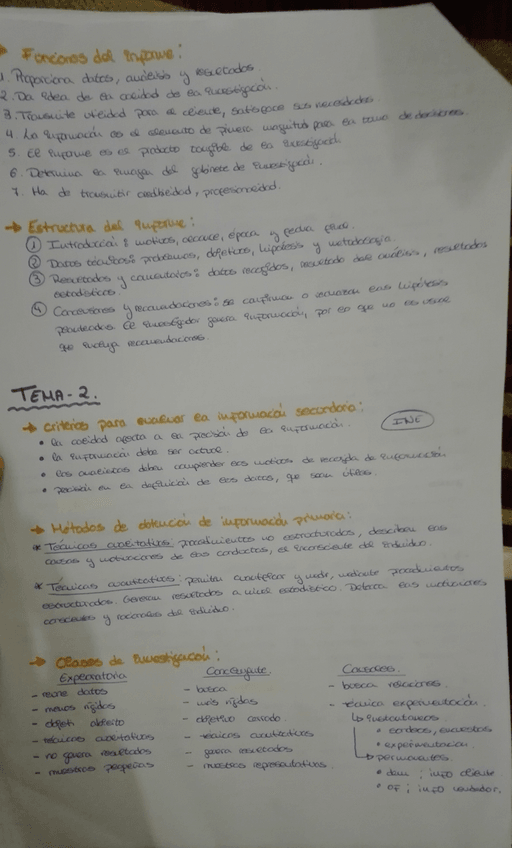 → Funciones del Informe:
1. Proporciona datos, análisis y resultados
2. Da idea de la calidad de la investigación.
3. Transmite utilidad para el cliente, satisface sus necesidades
4. La información es el elemento de primera magnitud para la toma de decisiones.
5. El informe es el producto tangible de la investigación
6. Determina la imagen del gabinete de investigación.
7. Ha de transmitir credibilidad, profesionalidad.
→ Estructura del informe:
① Introducción: motivos, alcance, época y fecha
② Datos técnicos: problemas, objetivos, hipótesis y metodología.
③ Resultados y comentarios: datos recogidos, resultado del análisis, resultados
estadísticos.
④ Conclusiones y recomendaciones: se confirman o rechazan las hipótesis
planteadas. El investigador genera información, por lo que no es usual
que incluya recomendaciones.
TEMA-2.
→ Criterios para evaluar la información secundaria:
INE
• la calidad afecta a la precisión de la información.
• la información debe ser actual.
• los analistas deben comprender los motivos de recogida de información
• precisión en la definición de los datos, que sean útiles.
→ Métodos de obtención de información primaria:
* Técnicas cualitativas: procedimientos no estructurados, describen las
causas y motivaciones de las conductas, el inconsciente del individuo.
* Técnicas cuantitativas: permiten cuantificar y medir, mediante procedimientos
estructurados. Generan resultados a nivel estadístico. Detecta las motivaciones
conscientes y racionales del individuo.
→ Clases de investigación:
Exploratoria
- reune datos
- menos rígidos
- objeti abierto
- técnicas cualitativas
- no genera resultados
- muestras pequeñas
Concluyente
- busca
- más rígidas
- objetivo cerrado
- técnicas cuantitativas
- genera resultados
- muestras representativas.
Causales.
- busca relaciones.
- técnica experimentación.
↳ instantáneas
• sondeos, encuestas
• experimentación
↳ permanentes
• dem; info cliente
• of; info vendedor.